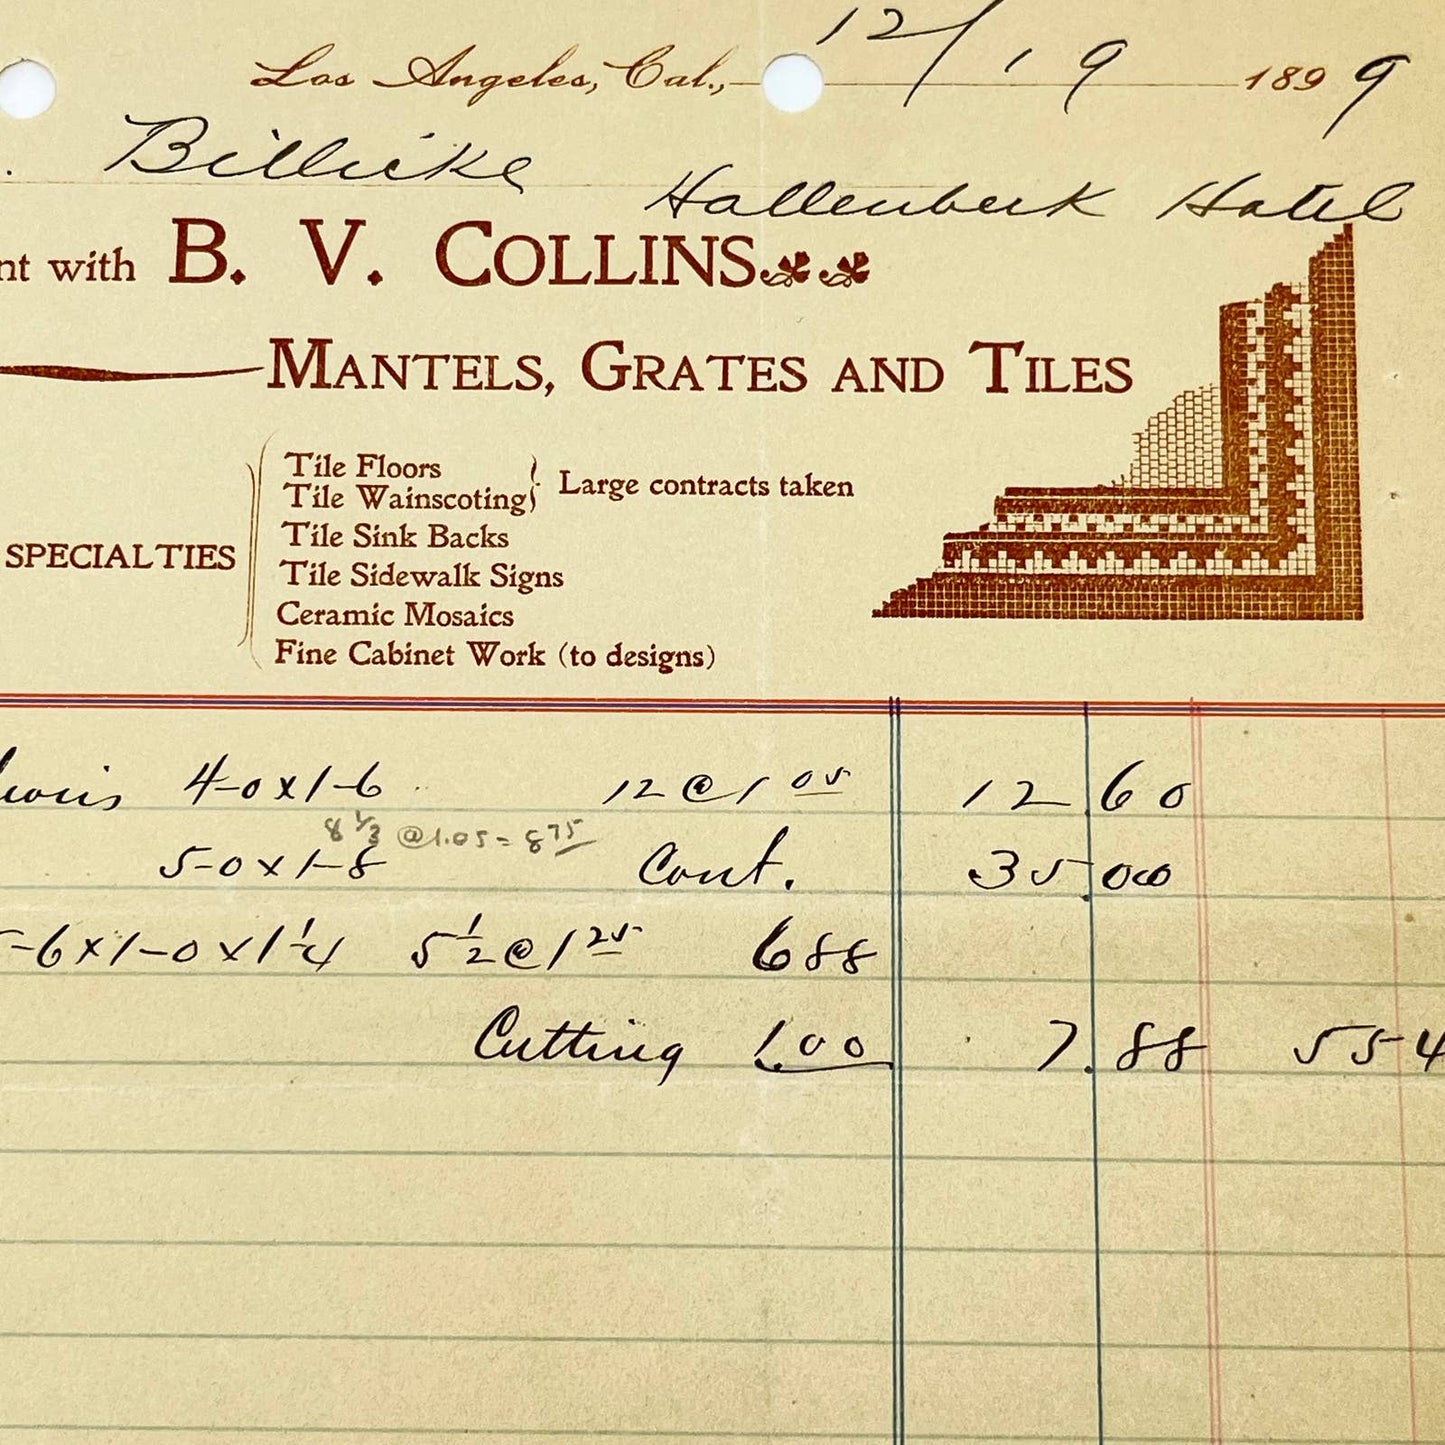 Los Angeles, Cal., 12/19 1899
Billicke Hollenbeck Hotel
nt with B. V. COLLINS
MANTELS, GRATES AND TILES
SPECIALTIES
Tile Floors
Tile Wainscoting
Large contracts taken
Tile Sink Backs
Tile Sidewalk Signs
Ceramic Mosaics
Fine Cabinet Work (to designs)
4-0x1-6 12@1 05 12.60
8 1/3 @1.05 = 8 75
5-0x1-8 Cont. 35.00
-6x1-0x1 1/4 5 1/2@1 25 6 88
Cutting 1.00 7.88 55 4